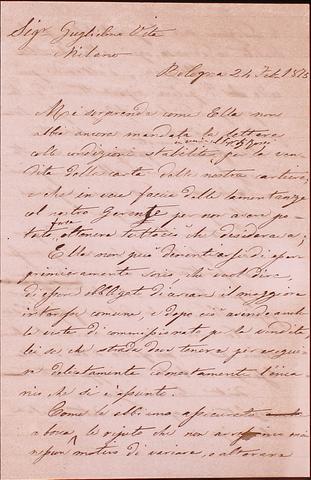 Sigr Guglielmo
Milano
Bologna 24 Feb
Mi sorprende come Ella non
abbia ancora mandata la lettera
colle condizioni stabilite per la ven
dita delle carte delle nostre cartiere,
e che in vece faccia delle lamentanze
col nostro Gerente per non aver po-
tuto ottenere tuttociò che desidera
Ella non può di esser
primieramente socio, che vuol dire,
di esser obbligato di il maggiore
interesse comune, e dopo ciò avendo anche
la veste di commissionato per la vendita,
sa che strada deve tenere per eseguir
e onestamente l'inca
rico che si è assunto.
Come le ebbimo assicurato a
voce, le ripeto che non mi
nessun motivo di variare, o alterare